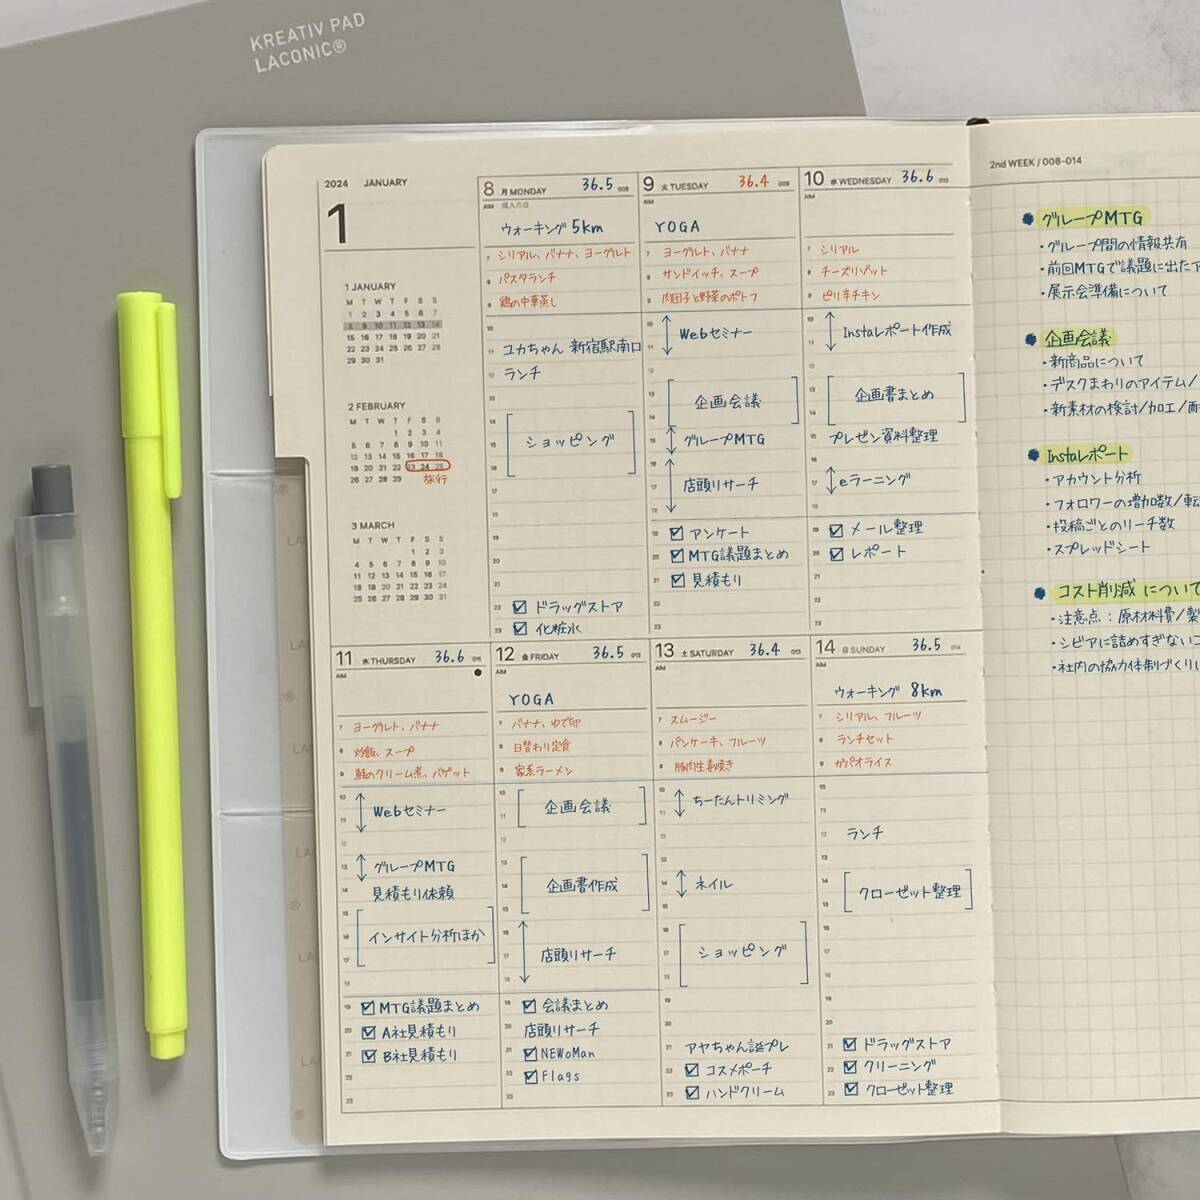 KREATIV PAD
LACONIC®
2024 JANUARY
1
1 JANUARY
M T W T F S S
1 2 3 4 5 6 7
8 9 10 11 12 13 14
15 16 17 18 19 20 21
22 23 24 25 26 27 28
29 30 31
2 FEBRUARY
M T W T F S S
1 2 3 4
5 6 7 8 9 10 11
12 13 14 15 16 17 18
19 20 21 22 23 24 25
26 27 28 29
旅行
3 MARCH
M T W T F S S
1 2 3
4 5 6 7 8 9 10
11 12 13 14 15 16 17
18 19 20 21 22 23 24
25 26 27 28 29 30 31
8 月 MONDAY 36.5 008
AM 成人の日
ウォーキング 5km
シリアル、バナナ、ヨーグルト
パスタランチ
鶏の中華蒸し
ユカちゃん 新宿駅南口
ランチ
ショッピング
ドラッグストア
化粧水
9 火 TUESDAY 36.4 009
AM
YOGA
ヨーグルト、バナナ
サンドイッチ、スープ
肉団子と野菜のポトフ
Webセミナー
企画会議
グループMTG
店頭リサーチ
アンケート
MTG議題まとめ
見積もり
10 水 WEDNESDAY 36.6 010
AM
シリアル
チーズリゾット
ピリ辛チキン
Instaレポート作成
企画書まとめ
プレゼン資料整理
eラーニング
メール整理
レポート
11 木 THURSDAY 36.6 011
AM
ヨーグルト、バナナ
炒飯、スープ
鮭のクリーム煮、バゲット
Webセミナー
グループMTG
見積もり依頼
インサイト分析ほか
MTG議題まとめ
A社見積もり
B社見積もり
12 金 FRIDAY 36.5 012
AM
YOGA
バナナ、ゆで卵
日替わり定食
家系ラーメン
企画会議
企画書作成
店頭リサーチ
会議まとめ
店頭リサーチ
NEWoMan
Flags
13 土 SATURDAY 36.4 013
AM
スムージー
パンケーキ、フルーツ
豚肉生姜焼き
ちーたんトリミング
ネイル
ショッピング
アヤちゃん誕プレ
コスメポーチ
ハンドクリーム
14 日 SUNDAY 36.5 014
AM
ウォーキング 8km
シリアル、フルーツ
ランチセット
ガパオライス
ランチ
クローゼット整理
ドラッグストア
クリーニング
クローゼット整理
2nd WEEK / 008-014
グループMTG
・グループ間の情報共有
・前回MTGで議題に出た
・展示会準備について
企画会議
・新商品について
・デスクまわりのアイテム/
・新素材の検討/加工/
Instaレポート
・アカウント分析
・フォロワーの増加数/
・投稿ごとのリーチ数
・スプレッドシート
コスト削減について
・注意点：原材料費/
・シビアに詰めすぎない
・社内の協力体制づくり